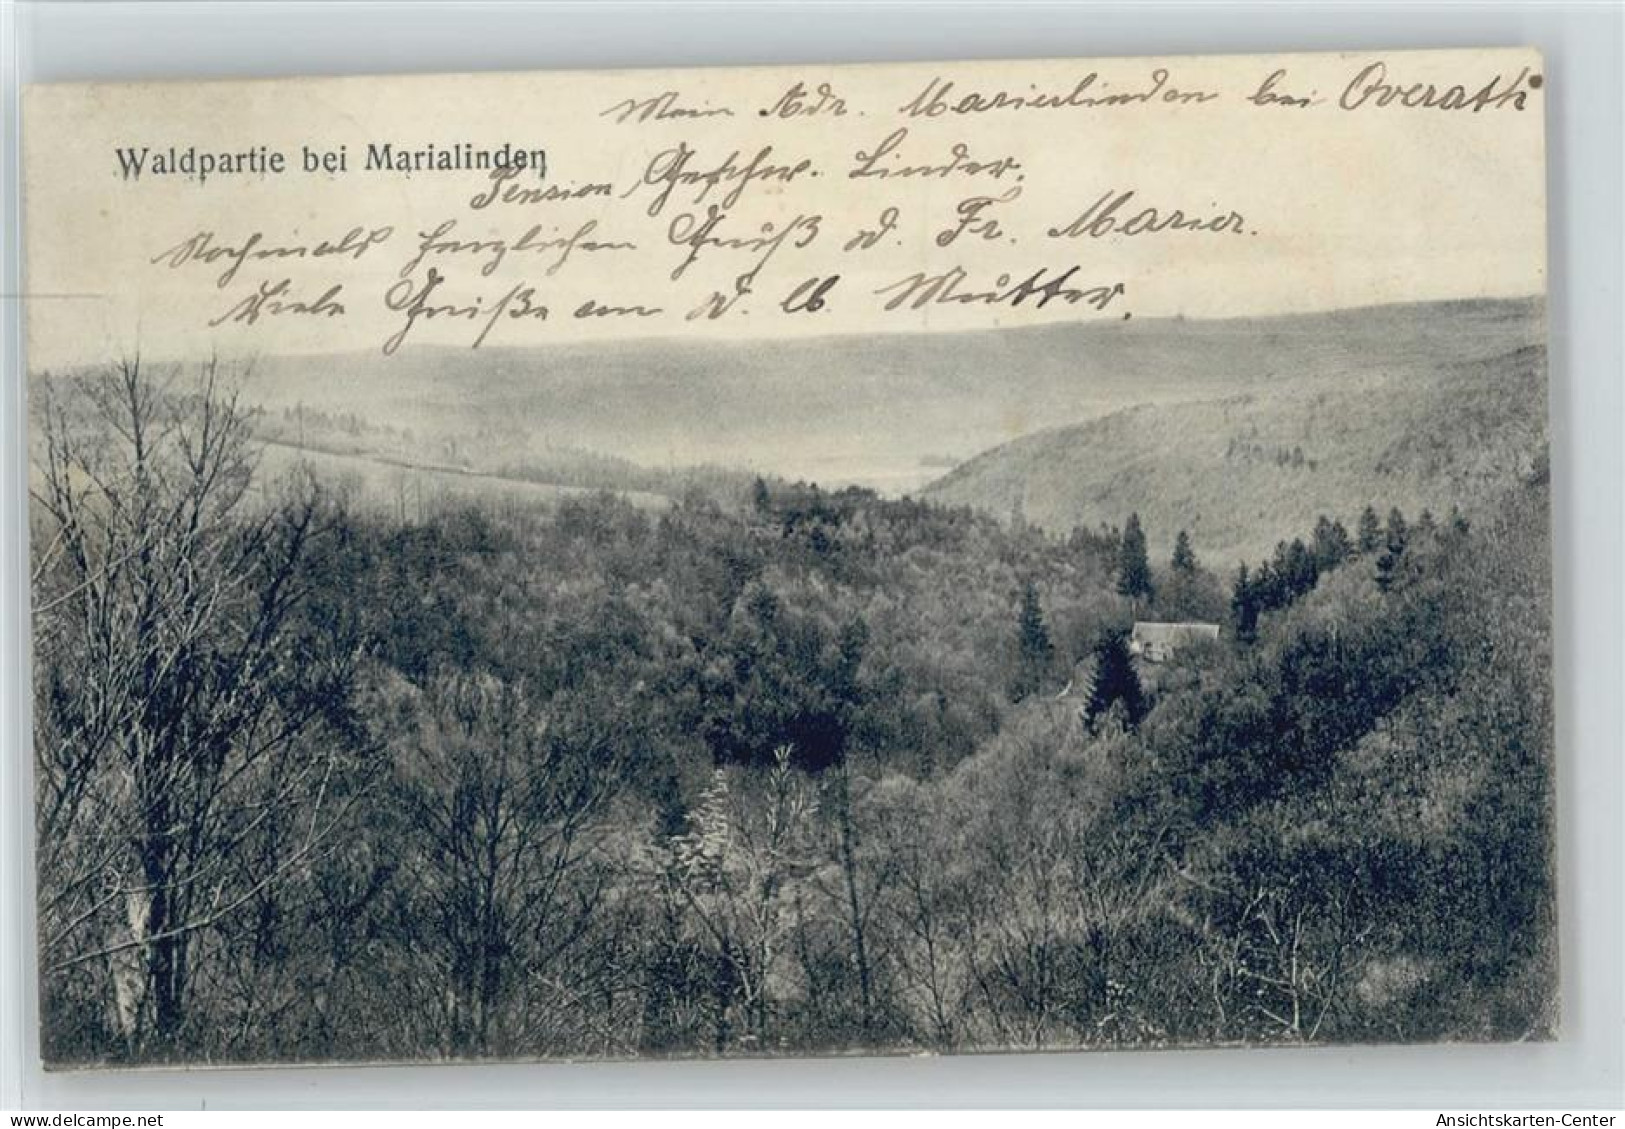 Mein Adr. Marienlinden bei Overath
Waldpartie bei Marialinden
Pension Geschw. Linder.
Nochmals herzlichen Gruß d. Fr. Marier.
Viele Grüße an d. lb. Mutter.
delcampe.net
Ansichtskarten-Center